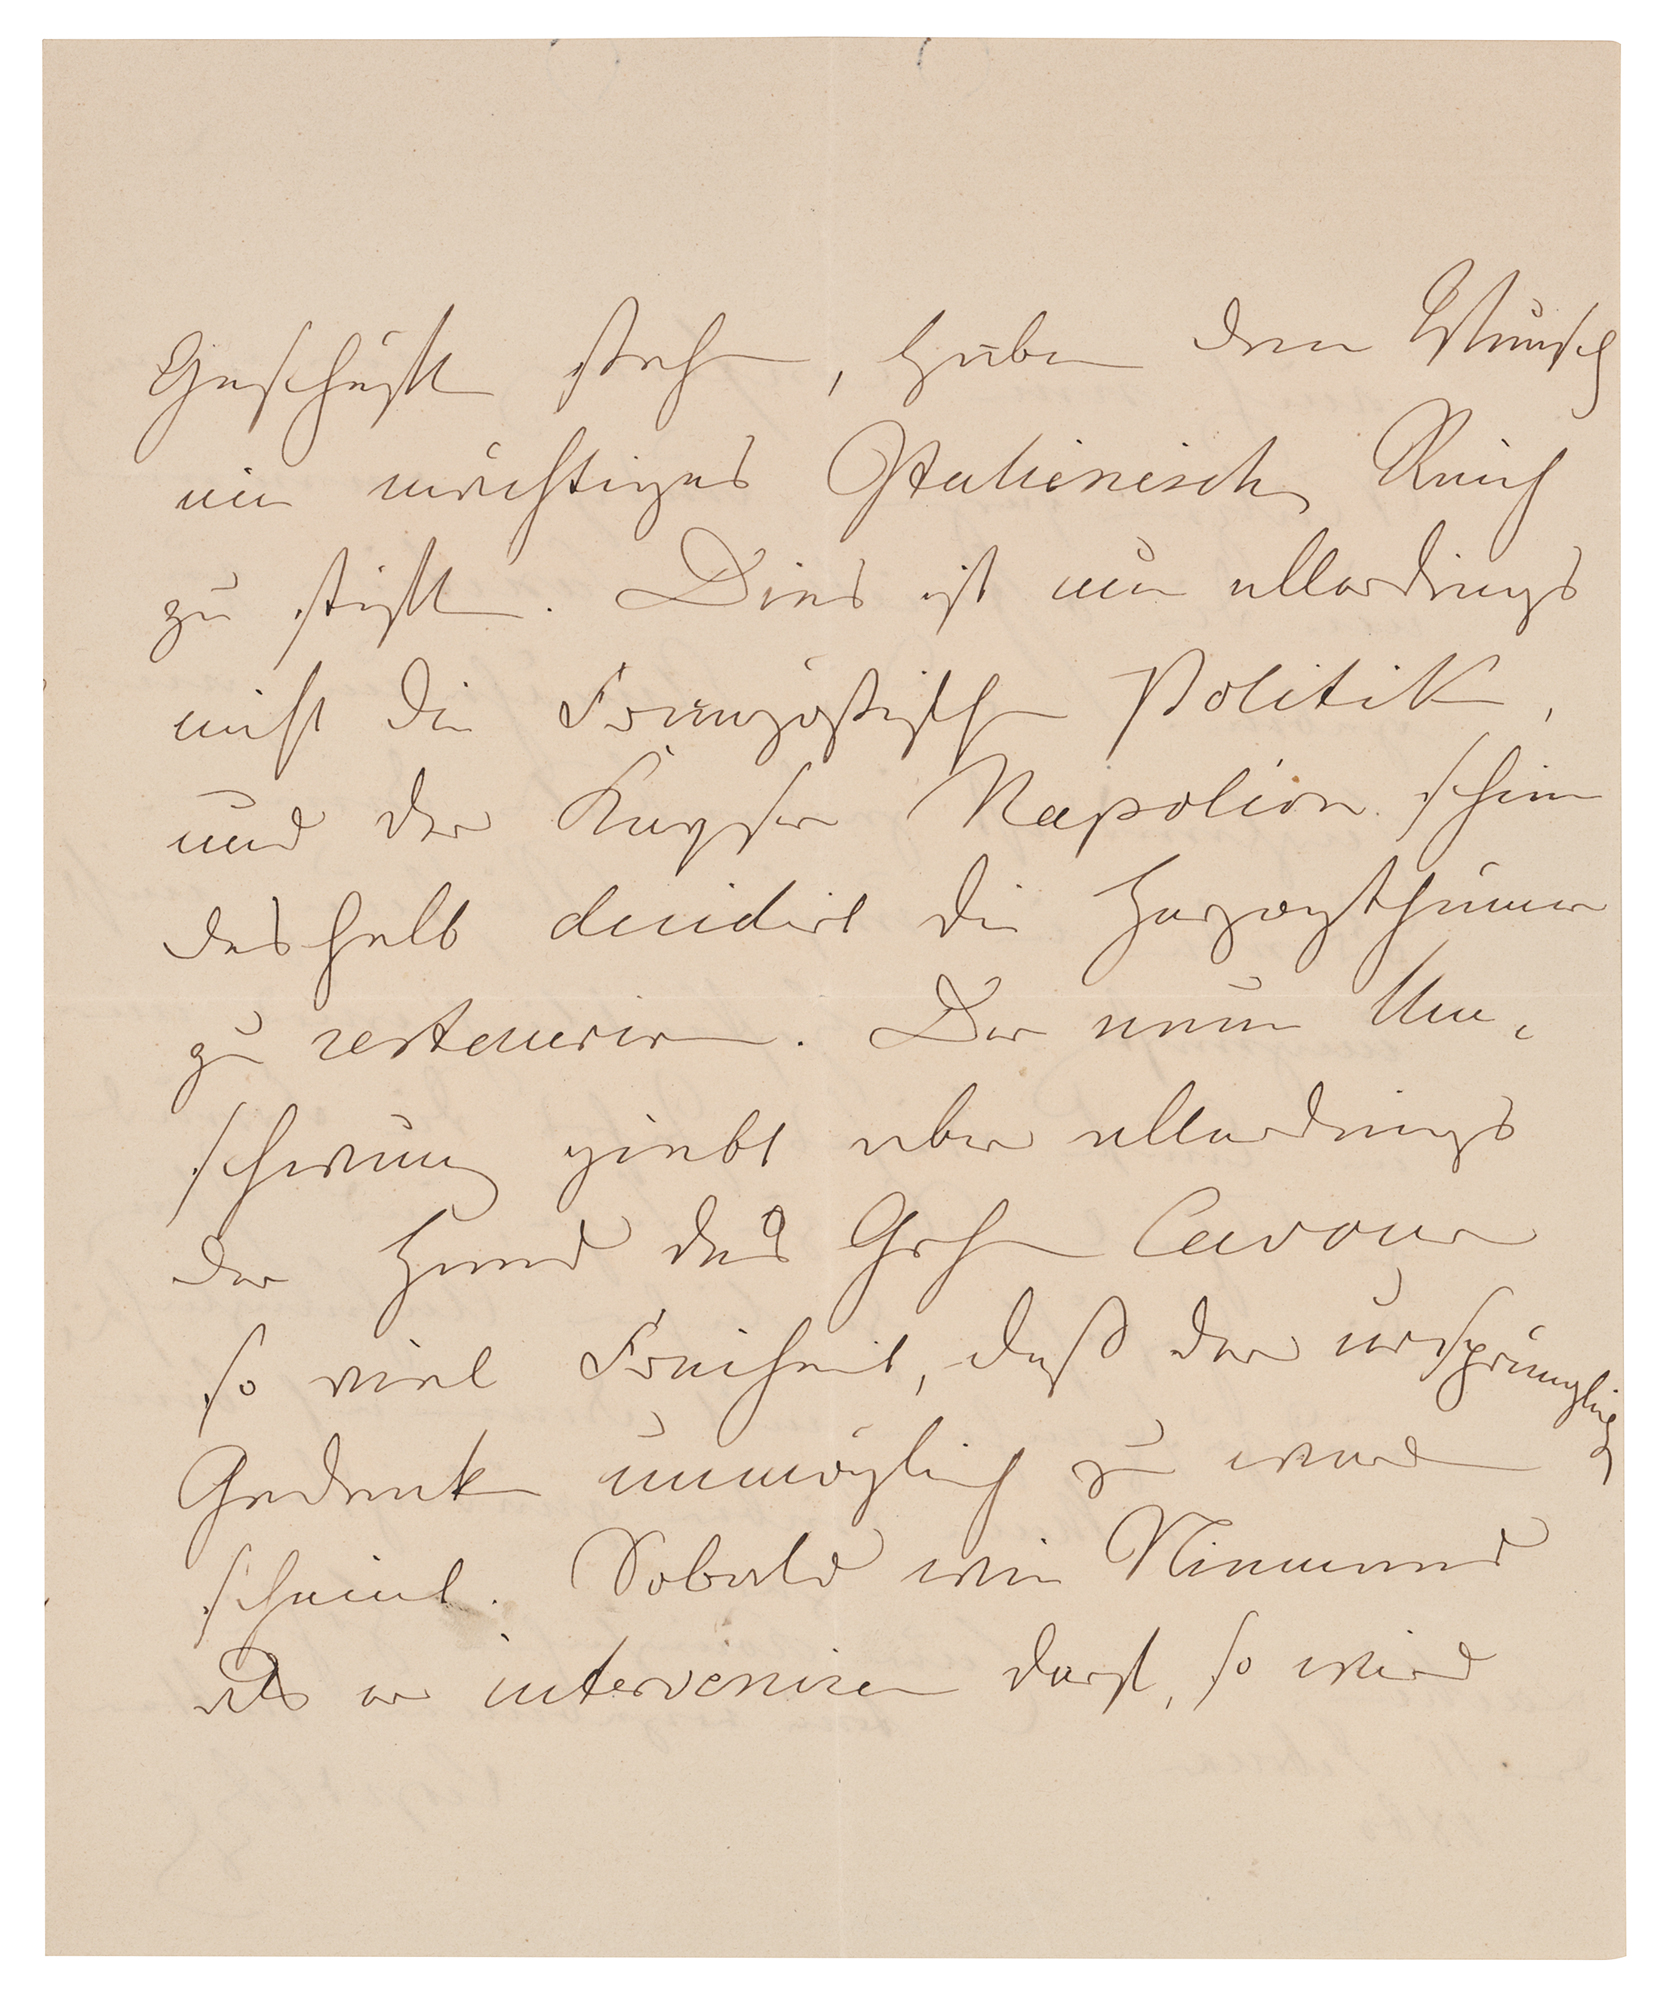 Geschäft stehen, haben den Wunsch
ein mächtiges Italienisches Reich
zu stiften. Dies ist nun allerdings
nicht die Französische Politik,
und der Kayser Napoléon schien
deshalb decidirt die Herzogthümer
zu restauriren. Der neue Um-
schwung giebt aber allerdings
der Hand des Grafen Cavour
so viel Freiheit, daß der ursprüngliche
Gedanke unmöglich zu werden
scheint. Sobald wie Niemand
als er interveniren darf, so wird